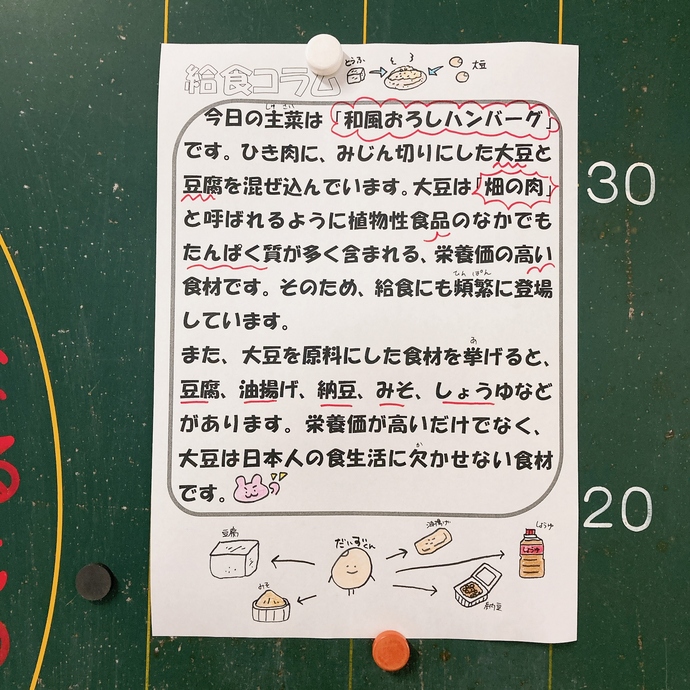 給食コラム
とうふ
大豆
今日の主菜は「和風おろしハンバーグ」
です。ひき肉に、みじん切りにした大豆と
豆腐を混ぜ込んでいます。大豆は「畑の肉」
と呼ばれるように植物性食品のなかでも
たんぱく質が多く含まれる、栄養価の高い
食材です。そのため、給食にも頻繁に登場
しています。
また、大豆を原料にした食材を挙げると、
豆腐、油揚げ、納豆、みそ、しょうゆなど
があります。栄養価が高いだけでなく、
大豆は日本人の食生活に欠かせない食材
です。
豆腐
だいずくん
油揚げ
しょうゆ
しょうゆ
みそ
納豆
30
20